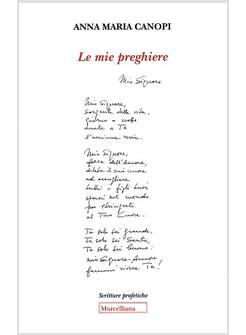 ANNA MARIA CANOPI
Le mie preghiere
Mio Signore
Mio Signore,
sorgente della vita,
giorno e notte
anela a Te
l'anima mia.
Mio Signore,
forza dell'Amore,
dilata il mio cuore
ad accogliere
tutti i figli tuoi
sparsi nel mondo
per stringerli
al Tuo Cuore.
Tu solo sei grande,
Tu solo sei Santo,
Tu solo sei buono:
mio Signore-Amore
fammi vivere Te!
Scritture profetiche
Morcelliana